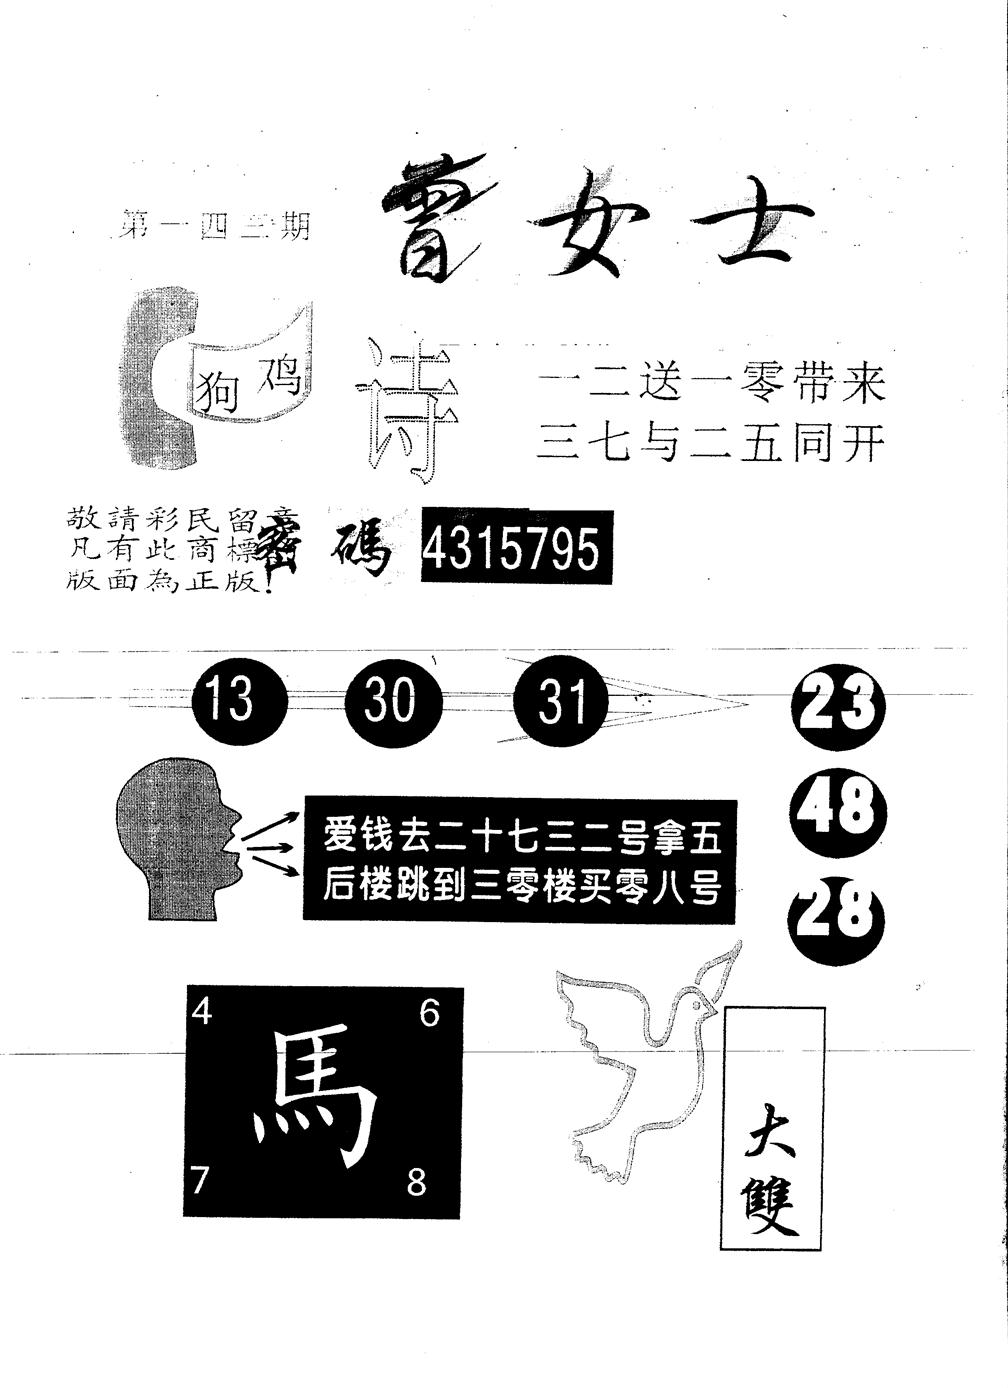 曾女士
第一四三期
狗 鸡
诗
一二送一零带来
三七与二五同开
敬請彩民留意
凡有此商標
版面為正版!
密碼 4315795
13 30 31 23
48
28
爱钱去二十七三二号拿五
后楼跳到三零楼买零八号
4 6
馬
7 8
大
雙